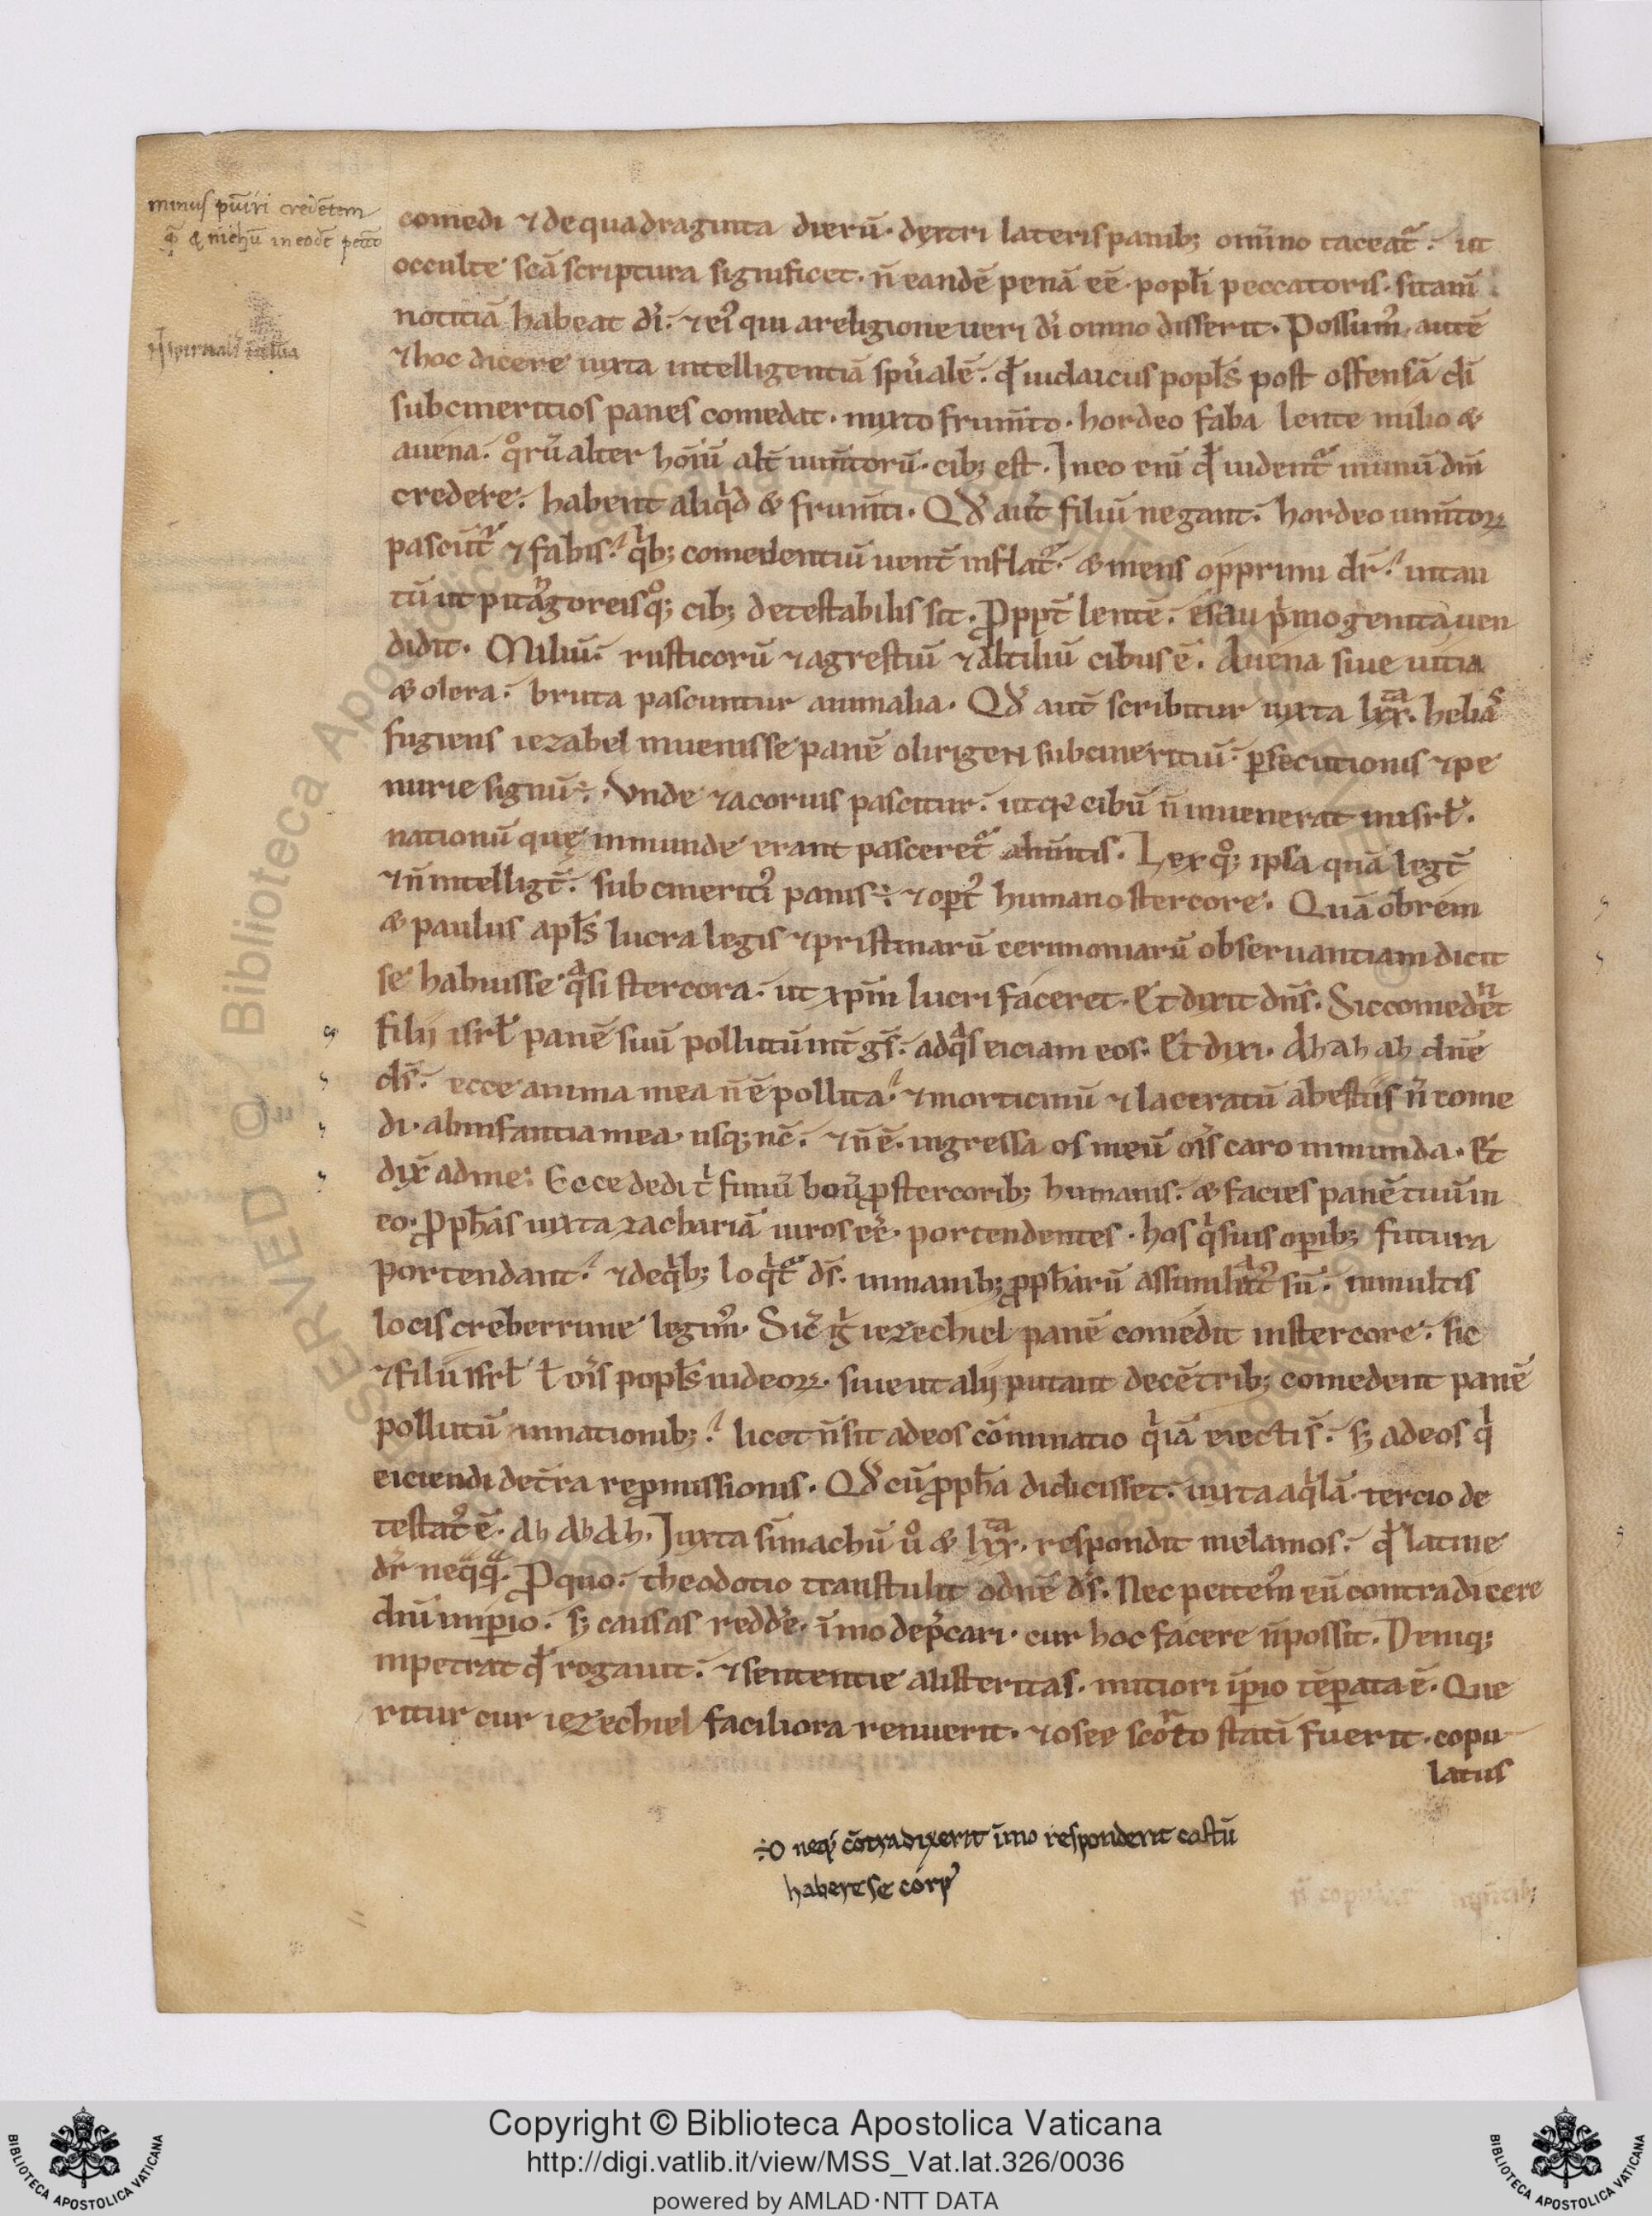 minus puiri credētem
comedi ⁊ de quadraginta dierū· dextri lateris panib; omīno taceat᷑· ut
occulte scā scriptura significet· n̄ eandē penā eē· popl̄i peccatoris· si tam̄
notitiā habeat dī· ⁊ eī qui a religione ueri dī omnno disserit· Possum᷒ autē
⁊ hoc dicere iuxta intelligentiā spūalē· qđ iudaicus popl̄s post offensā dī
subcineritios panes comedat· mixto frum̄to· hordeo faba lente milio &
auena· qͦrū alter hoīū alt̄ ium̄torū· cib; est· In eo enī qđ uident᷑ unnū dm̄
credere· habent aliqͥd & frum̄ti· Qđ aut̄ filiū negant· hordeo ium̄toꝝ
pascūt᷑ ⁊ fabis· qͥb; comedentiū uent̄ inflat᷑· & mens opprimi dr̄· intan
tū ut pitagoreis qͦq; cib; detestabilis sit· Ꝓppt̄ lentē· esau pͥmogenita uen
didit· Miliū· rusticorū ⁊ agrestiū ⁊ altiliū cibus ē· Auena siue uitia
& olera· bruta pascuntur animalia· Qđ aut̄ scribitur iuxta lxx· helias
fugiens iezabel inuenisse panē olirigeri subcineritiū· ꝑsecutionis ⁊ pe
nurie signū ÷· Vnde ⁊ a coruis pascitur· ut qꝛ cibū n̄ inuenerat in isrł·
nationū quę inmunde erant pasceret᷑ alim̄tis· Lex qͦq; ipsa quā legt̄
⁊ n̄ intelligt̄· subcineriti᷒ panis ÷· ⁊ opt᷒ humano stercore· Quā obrem
& paulus apl̄s lucra legis ⁊ pristinarū cerimoniarū obseruantiam dicit
se habuisse qᷓsi stercora· ut xp̄m lucri faceret· Et dixit dn̄s· Sic comedēt
filij isrł panē suū pollutū int̄ gs̄· ad qͣs eiciam eos· Et dixi· Ah ah ah dn̄e
ds̄· ecce anima mea n̄ ē polluta· ⁊ morticinū ⁊ laceratū a bestiis n̄ come
di· ab infantia mea usq; nc̄· ⁊ n̄ ē· ingressa os meū ois̄ caro inmunda· Et
dix̄ ad me· Ecce dedi tͥ fimū boū ꝓ stercorib; humanis· & facies panē tuū in
eo· Ꝓph̄as iuxta zachariā uiros eē· portendentes· hos qͥ suis opib; futura
portendant· ⁊ de qͥb; loqͥt᷑ ds̄· in manib; ꝓph̄arū assimilat᷒ sū· in multis
locis creberrime legim᷒· Sic̄ gͥ iezechiel panē comedit in stercore· sic
⁊ filii isrł ł ois̄ popl̄s iudeoꝝ· siue ut alij putant decē trib; comedent panē
pollutū in nationib; licet n̄ sit ad eos cōminatio qͥ iā eiecti s̄· s; ad eos qͥ
eiciendi de tr̄a repromissionis· Qđ cū ꝓph̄a didicisset· iuxta aqͥlā· tercio de
testat᷒ ē· Ah Ah Ah· Iuxta sīmachū uͦ & lxx· respondit melamos· qđ latine
dr̄ neqͣqͣ· Ꝓ quo· theodotio transtulit o dn̄e ds̄· Nec putem᷒ eū contradicere
dn̄i impio· s; causas reddēe· īmo depͥcari· cur hoc facere n̄ possit· Deniq;
inpetrat qđ rogauit· ⁊ sententie austeritas· mitiori īpio tēperata ē· Que
ritur cur iezechiel faciliora renuerit· ⁊ osee scorto statī fuerit· copu
latus
÷ O neq; cōtradixerit īmo responderit castū
habere se corp᷒
Copyright © Biblioteca Apostolica Vaticana
http://digi.vatlib.it/view/MSS_Vat.lat.326/0036
powered by AMLAD·NTT DATA
BIBLIOTECA APOSTOLICA VATICANA
BIBLIOTECA APOSTOLICA VATICANA